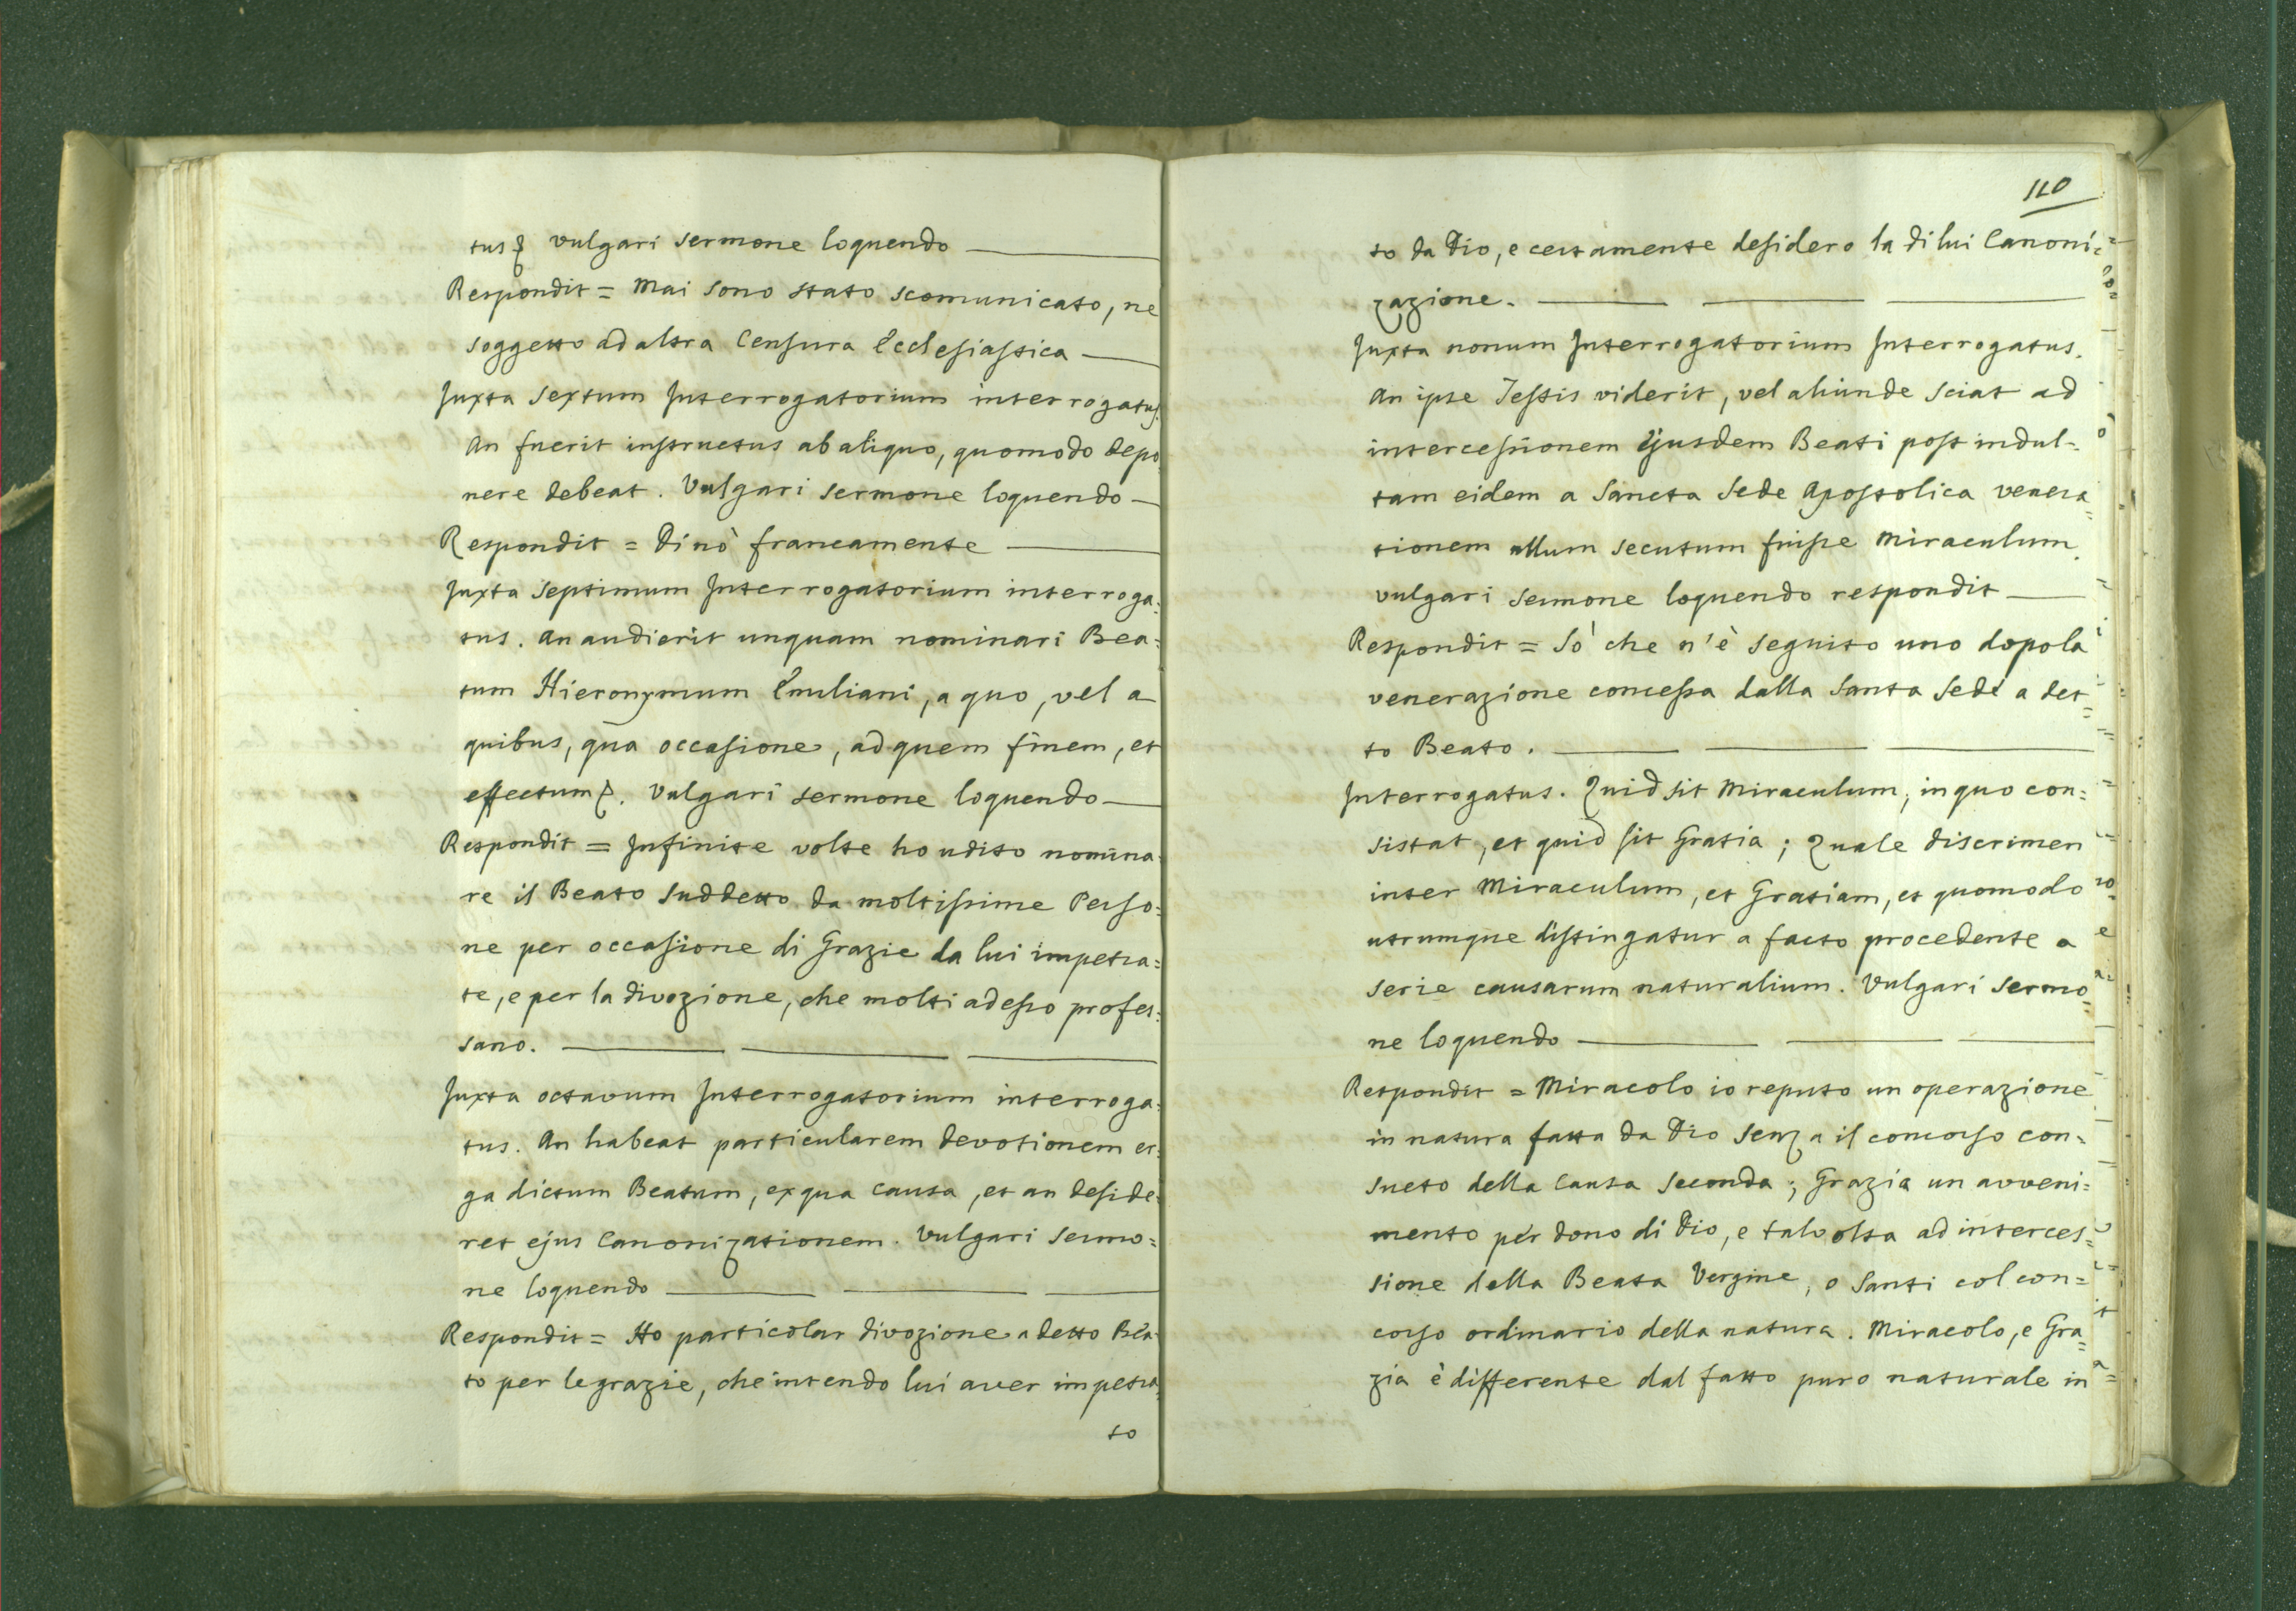 tus &. vulgari sermone loquendo
Respondit = Mai sono stato scomunicato, ne
soggetto ad altra Censura Ecclesiastica
Juxta Sextum Interrogatorium interrogatus.
An fuerit instructus ab aliquo, quomodo depo
nere debeat. Vulgari sermone loquendo
Respondit = Di nò francamente
Juxta Septimum Interrogatorium interroga=
tus. An audierit unquam nominari Bea=
tum Hieronymum Emiliani, a quo, vel a
quibus, qua occasione, ad quem finem, et
effectum &. Vulgari sermone loquendo
Respondit = Infinite volte ho udito nomina=
re il Beato Suddetto da moltissime Perso=
ne per occasione di Grazie da lui impetra=
te, e per la divozione, che molti adesso profes=
sano.
Juxta octavum Interrogatorium interroga=
tus. An habeat particularem devotionem er=
ga dictum Beatum, ex qua causa, et an deside=
ret ejus Canonizationem. Vulgari Sermo=
ne loquendo
Respondit = Ho particolar divozione a detto Bea=
to per le grazie, che intendo lui aver impetra=
to
110
to da Dio, e certamente desidero la di lui Canoni=
zazione.
Juxta nonum Interrogatorium Interrogatus.
An ipse Testis viderit, vel aliunde sciat ad
intercessionem Ejusdem Beati post indul=
tam eidem a Sancta Sede Apostolica venera=
tionem ullum secutum fuisse Miraculum.
vulgari sermone loquendo respondit
Respondit = Sò che n'è seguito uno dopo la
venerazione concessa dalla Santa Sede a det=
to Beato.
Interrogatus. Quid sit Miraculum, in quo con=
sistat, et quid sit Gratia; Quale discrimen
inter Miraculum, et Gratiam, et quomodo
utrumque distingatur a facto procedente a
serie causarum naturalium. Vulgari sermo=
ne loquendo
Respondit = Miracolo io reputo un operazione
in natura fatta da Dio senza il concorso con=
sueto della Causa Seconda; Grazia un avveni=
mento per dono di Dio, e talvolta ad interces=
sione della Beata Vergine, o Santi col con=
corso ordinario della natura. Miracolo, e Gra=
zia è differente dal fatto puro naturale in